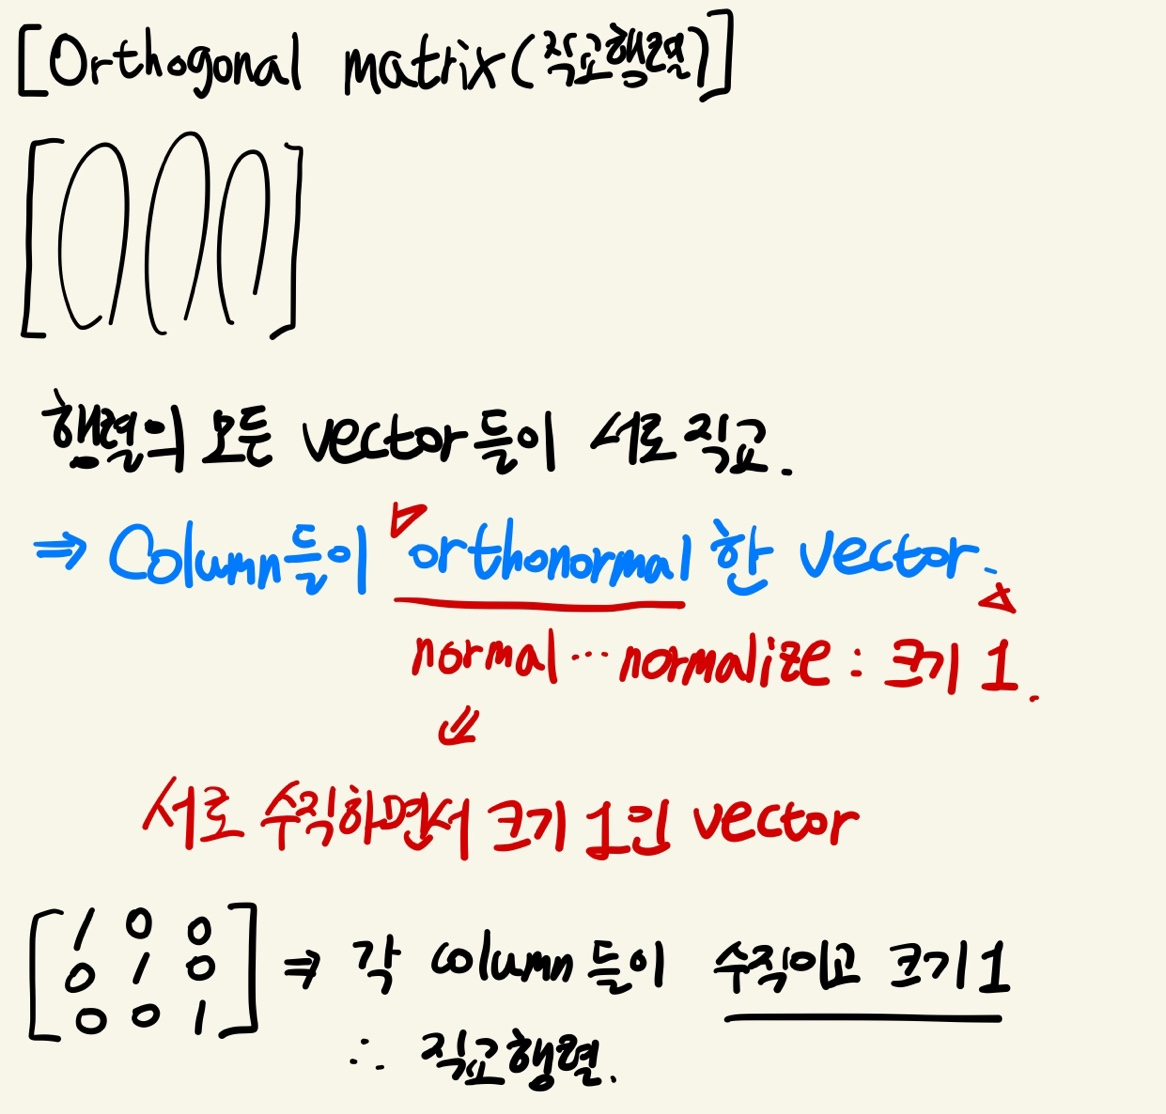 [Orthogonal matrix(직교행렬)]
행렬의 모든 vector들이 서로 직교.
⇒ Column들이 orthonormal 한 vector.
normal … normalize : 크기 1.
서로 수직하면서 크기 1인 vector
[1 0 0
0 1 0
0 0 1] ⇒ 각 column 들이 수직이고 크기 1
∴ 직교행렬.